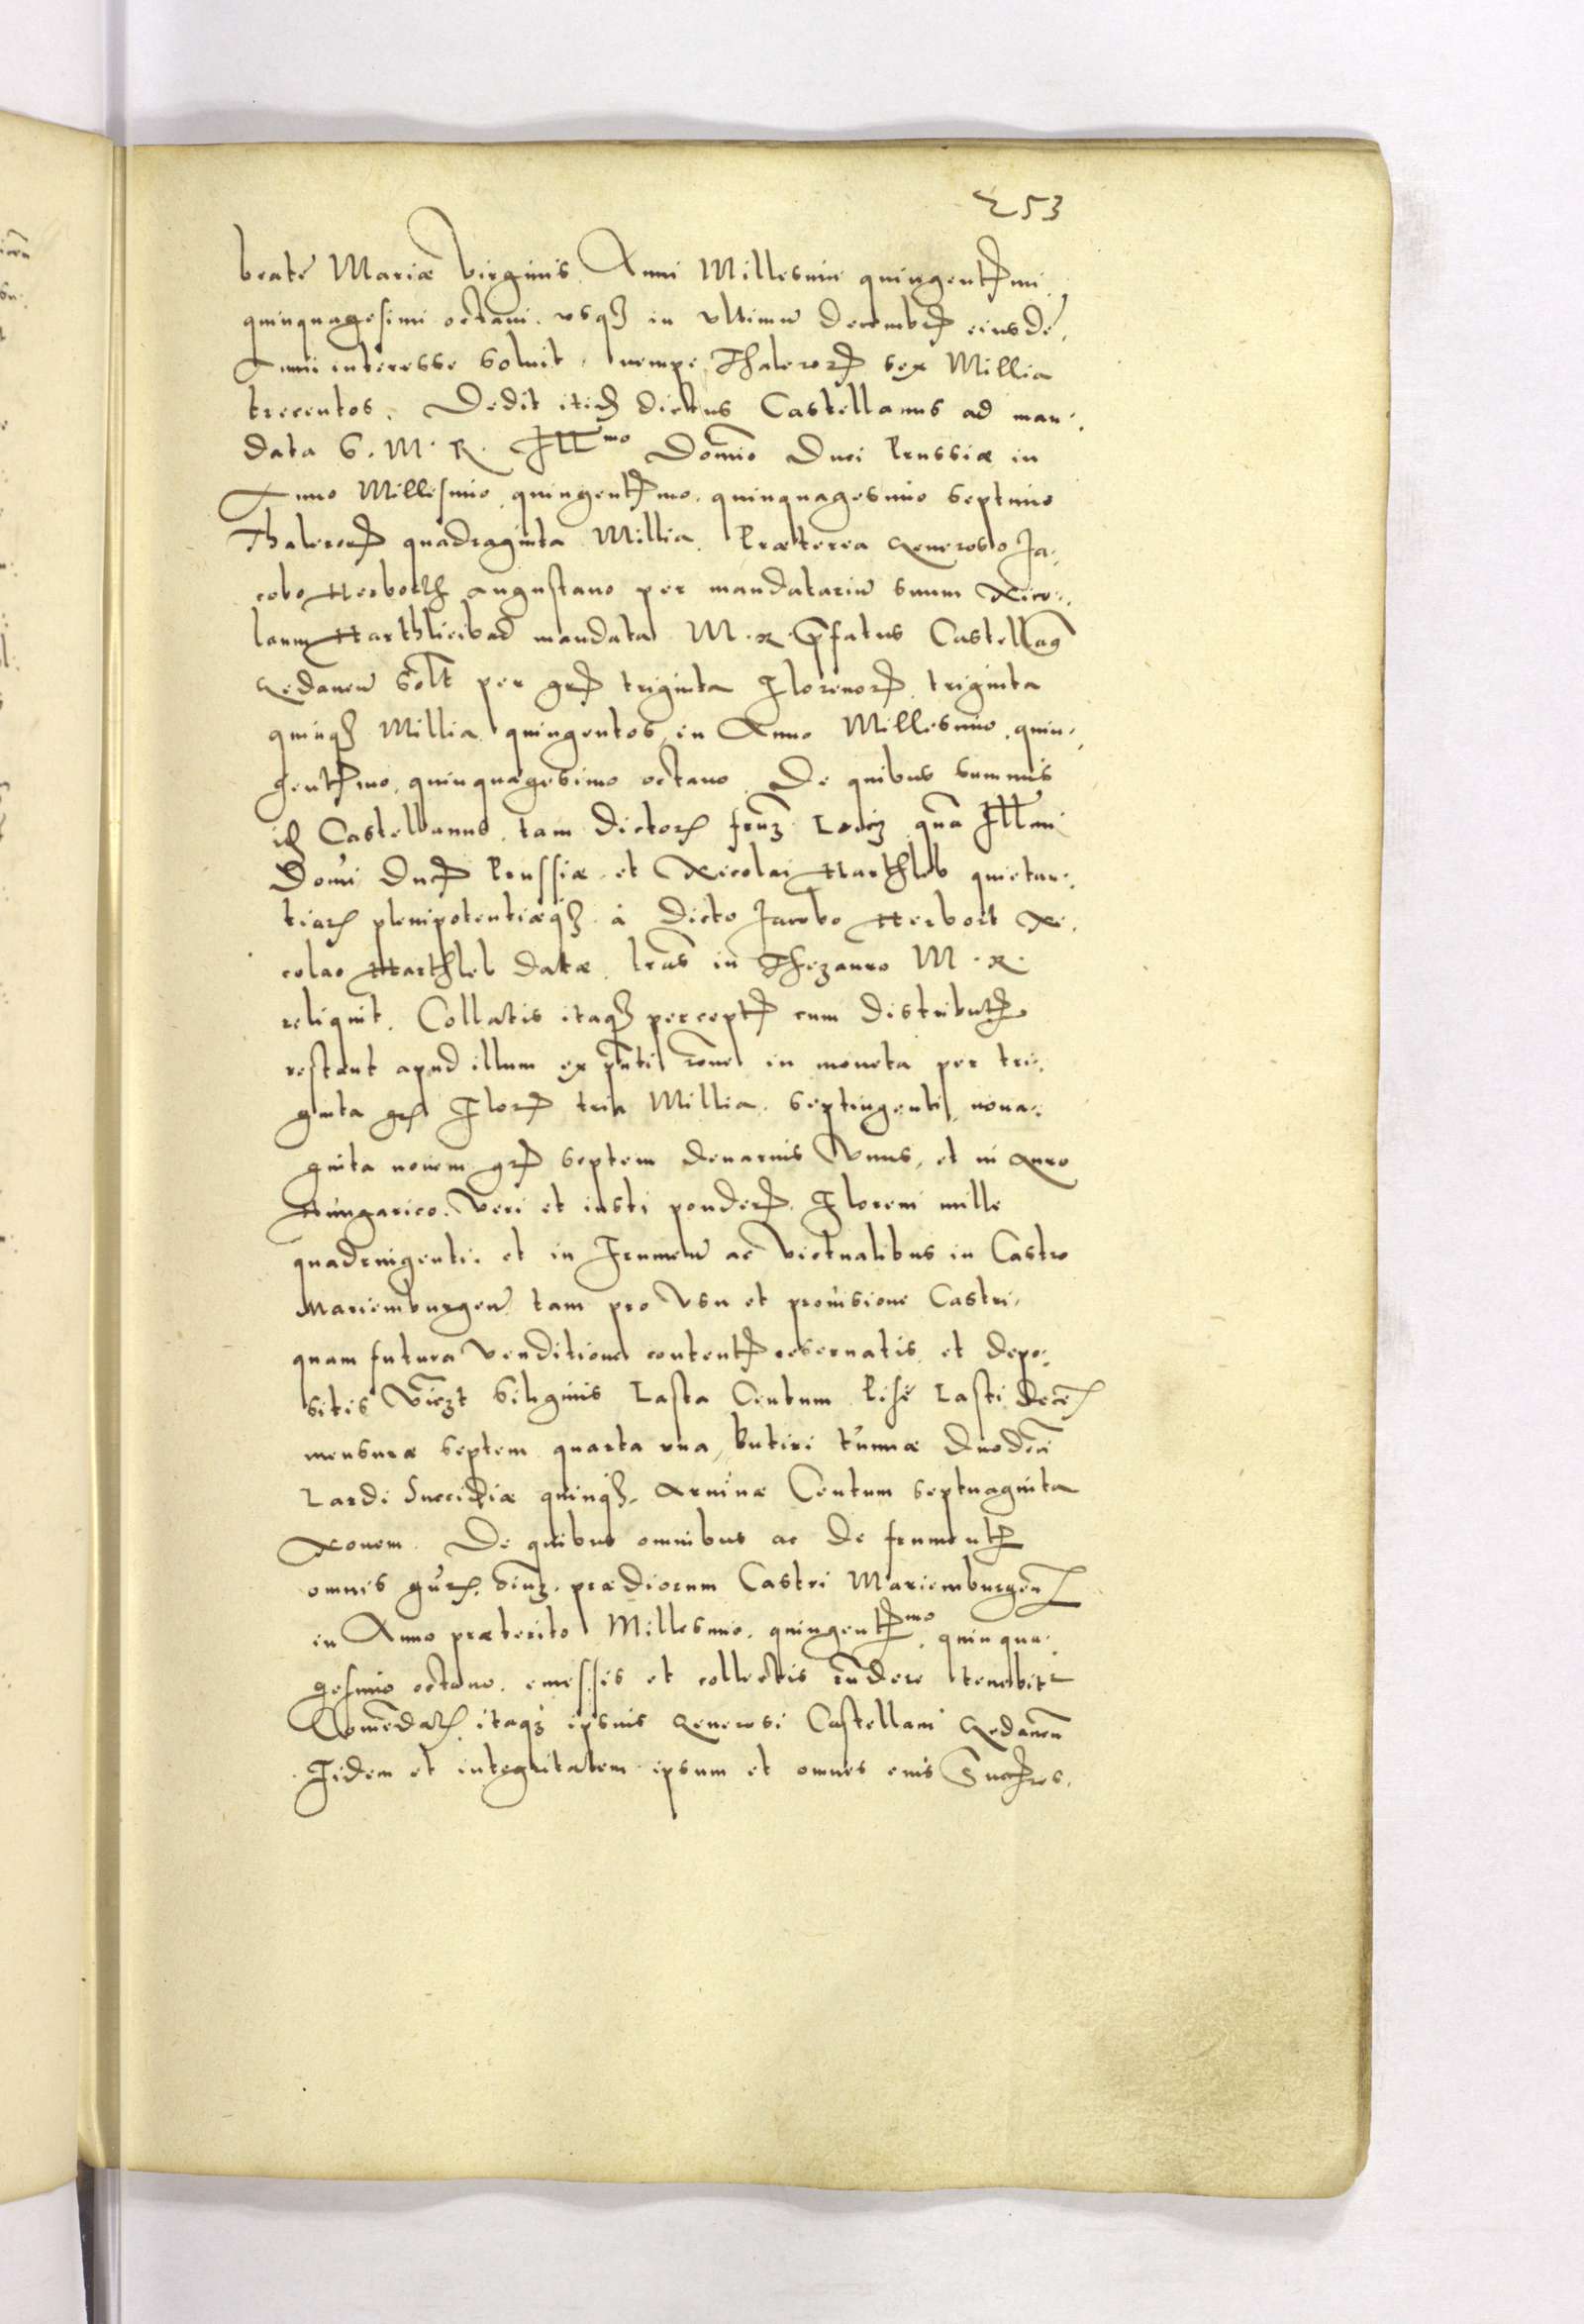 253
beatæ Mariæ Virginis Anni Millesimi quingentesimi
quinquagesimi octaui. usq3 in vltimũ decembris eiusdẽ
Anni interesse soluit, nempe Thalerorũ sex Millia
trecentos. Dedit itidẽ dictus Castellanus ad man:
data S. M. R. Illmo Domĩo Duci Prussiæ in
Anno Millesimo quingentesimo. quinquagesimo septimo
Thalerorũ quadraginta Millia. Præterea Generoso Ja:
cobo Herborth augustano per mandatariũ suum Nico:
laum Harthlieb ad mandata M. R. p̃fatus Castellanus
Gedaneñ solt per gros triginta Florenorũ triginta
quinq3 Millia quingentos, in Anno Millesimo, quin:
gentesimo, quinquagesimo octauo. De quibus summis
is Castellanus tam dictorũ frũ3 Loicz quã Illmi
Domĩ Ducis Prussiæ et Nicolai Harthleb quietan:
tiarũ plenipotentiæq3 à dicto Jacobo Herbort Ni:
colao Harthleb datæ l̃ras in Thezauro M. R.
reliquit. Collatis itaq3 perceptis cum distributis
restant apud illum ex p̃nti r̃one in moneta per tri:
ginta gros Flor tria Millia. Septingenti nona:
ginta nouem gros septem denarius Vnus, et in Auro
Hungarico. Veri et iusti ponderis. Floreni mille
quadringenti. et in Frumeñ ac victualibus in Castro
Mariemburgeñ tam pro Vsu et prouisione Castri,
quam futura Venditione contentis reseruatis et depo:
sitis Vic3t Siliginis Lasta Centum Pisẽ Lasti decẽ
mensuræ septem quarta vna, butiri tunnæ duodeci
Lardi Succidiæ quinq3, Aruinæ Centum septuaginta
Nouem. De quibus omnibus ac de frumentis
omnis gñris, omñ3. prædiorum Castri Mariemburgeñ
in Anno præterito Millesimo. quingentesimo, quinqua:
gesimo octauo. emessis et collectis r̃ndere tenebitur
Com̃endarũ itaq3 ipsius Generosi Castellani Gedaneñ
Fidem et integritatem ipsum et omnes eius Succ̃res.